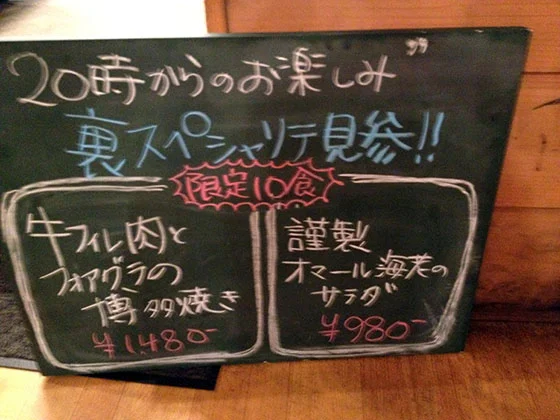 20時からのお楽しみ〃
裏スペシャリテ見参!!
限定10食
牛フィレ肉と
フォアグラの
博多焼き
¥1,480-
謹製
オマール海老の
サラダ
¥980-